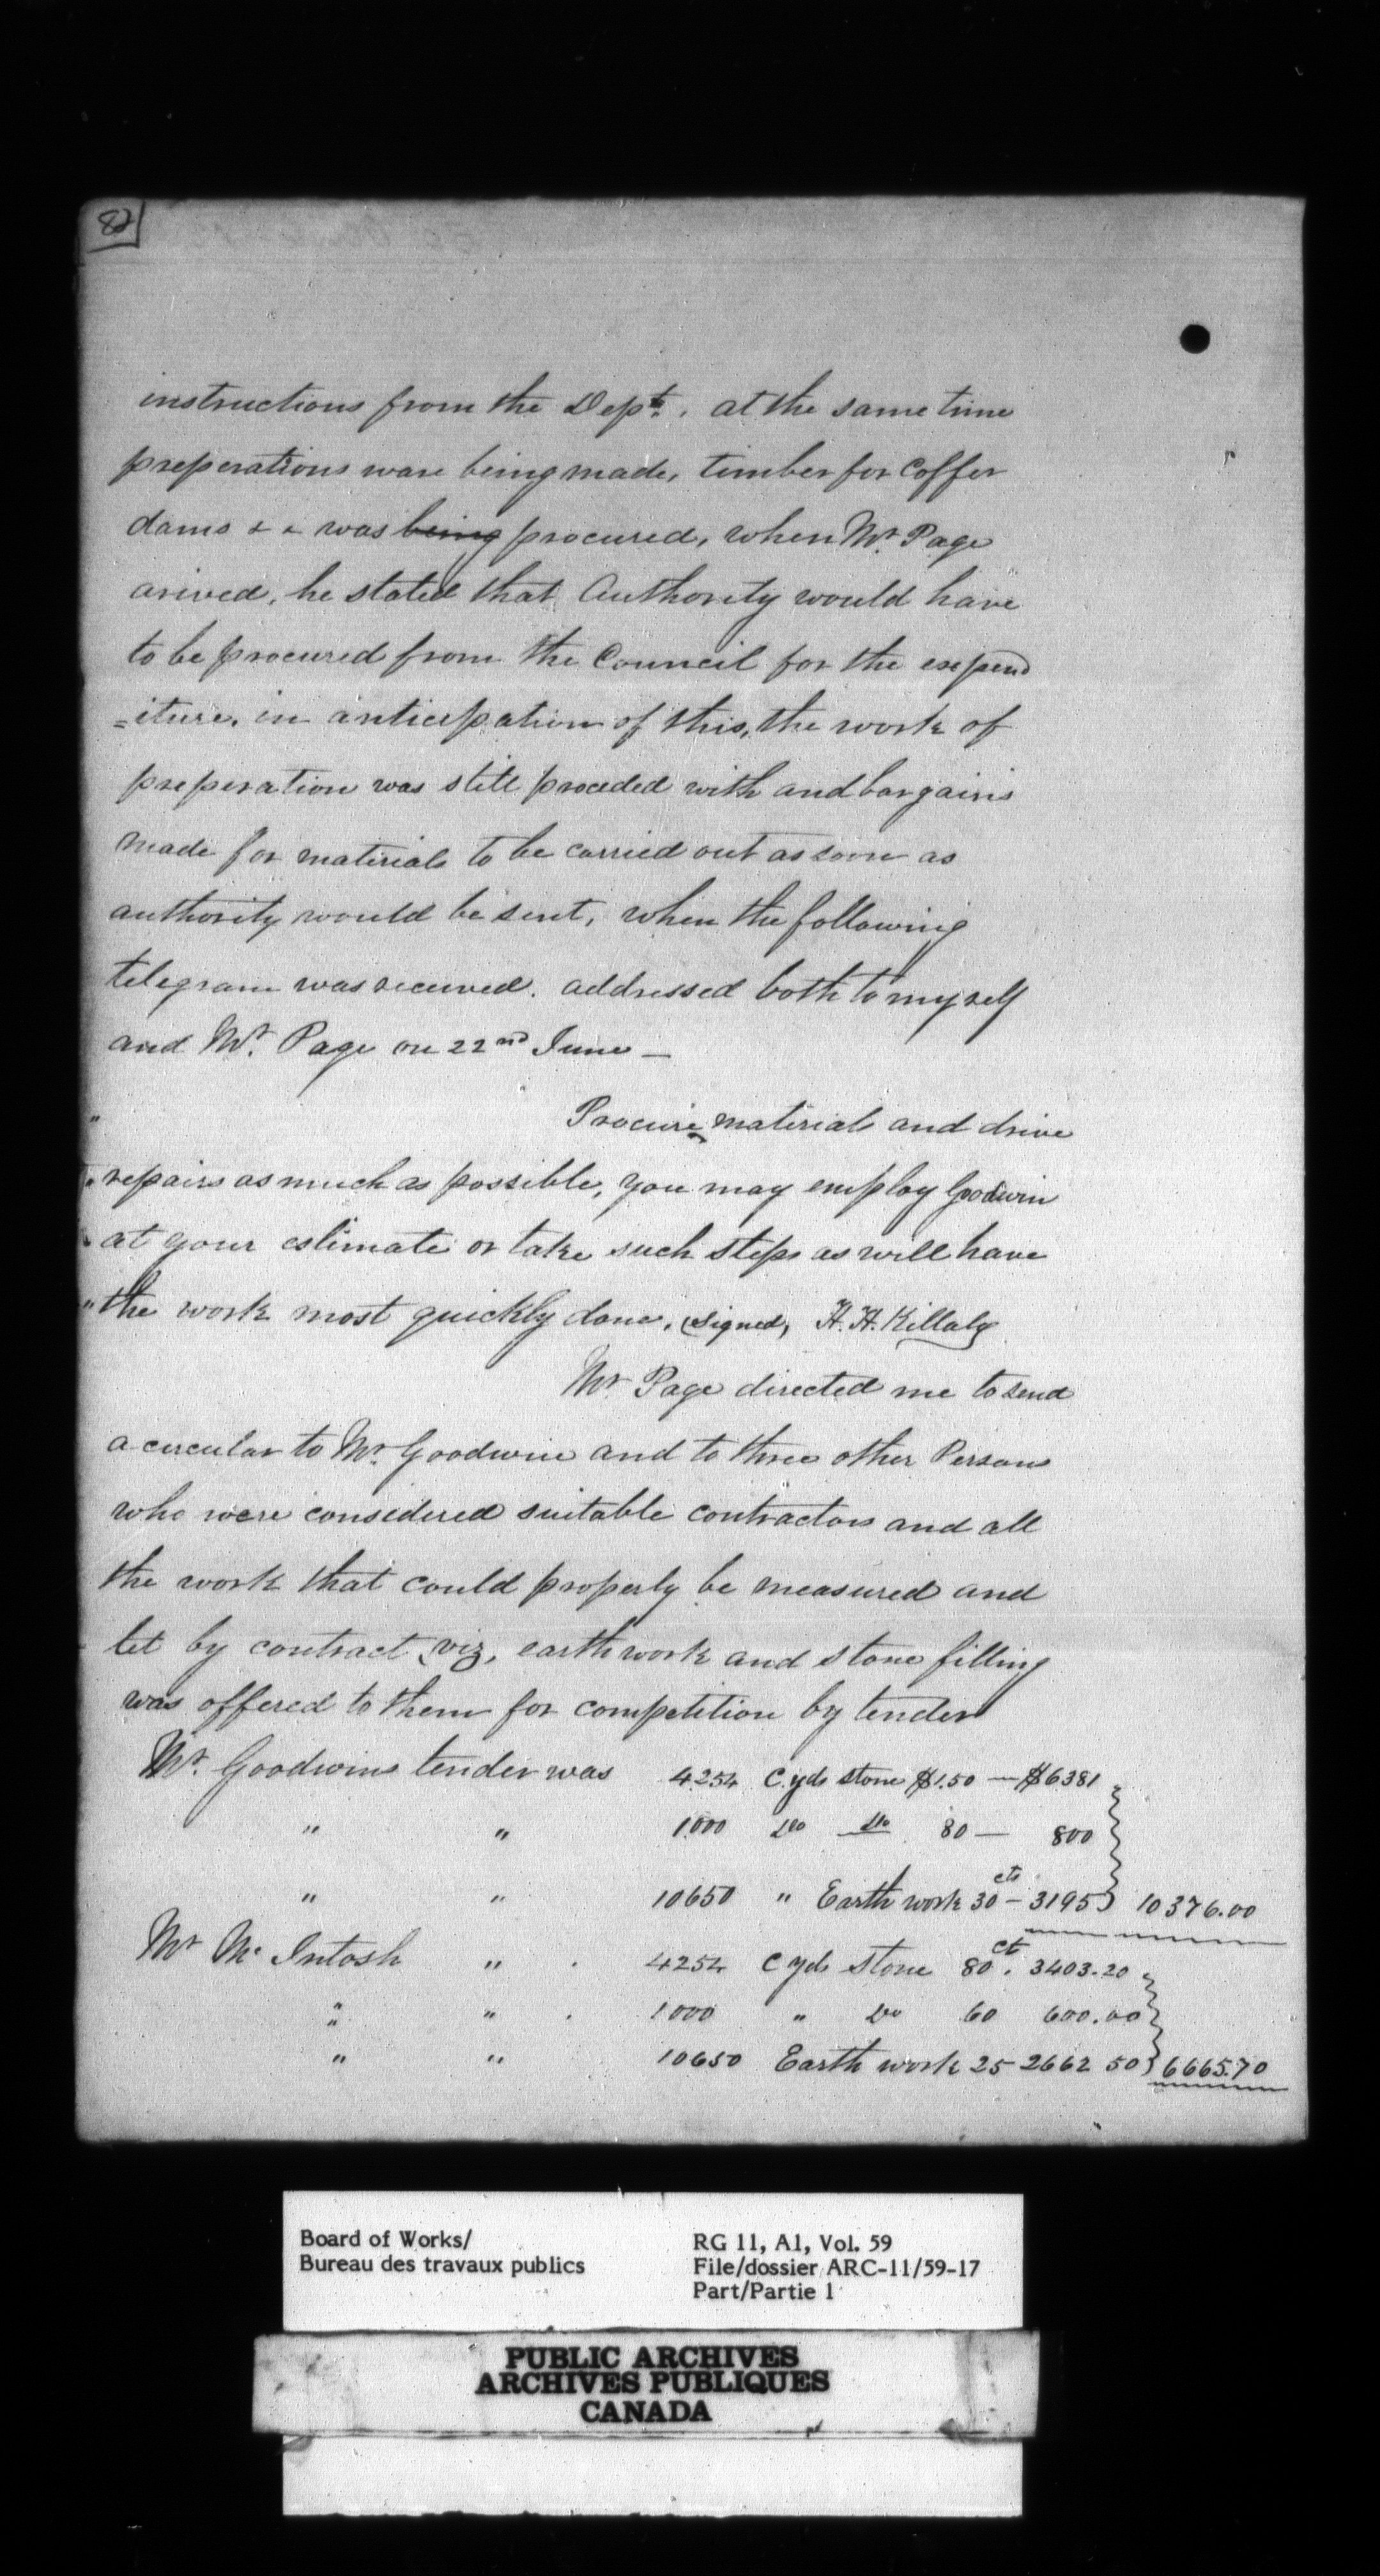 82
instructions from the Dept. at the same time
preperations ware being made, timber for Coffer
dams & & was being procured, when Mr. Page
arived, he stated that Authority would have
to be procured from the Council for the expend
=iture, in anticipation of this, the work of
preperation was still proceded with and bargains
made for materials to be carried out as soon as
authority would be sent, when the following
telegram was received. addressed both to myself
and Mr. Page on 22nd June —
" Procure materials and drive
" repairs as much as possible, you may employ Goodwin
" at your estimate or take such steps as will have
" the work most quickly done, (signed, H. H. Killaly
Mr Page directed me to send
a circular to Mr. Goodwin and to three other Persons
who were considered suitable contractors and all
the work that could properly be measured and
let by contract, viz, earthwork and stone filling
was offered to them for competition by tender
Mr. Goodwins tender was 4254 C yds stone $1.50 — $6381
" " 1000 Do Do 80 — 800
" " 10650 " Earth work 30 cts - 3195 10376.00
Mr McIntosh " 4254 C yds stone 80 ct. 3403.20
" " 1000 " Do 60 600.00
" " 10650 Earth work 25 2662 50 6665.70
Board of Works/
Bureau des travaux publics
RG 11, A1, Vol. 59
File/dossier ARC-11/59-17
Part/Partie 1
PUBLIC ARCHIVES
ARCHIVES PUBLIQUES
CANADA